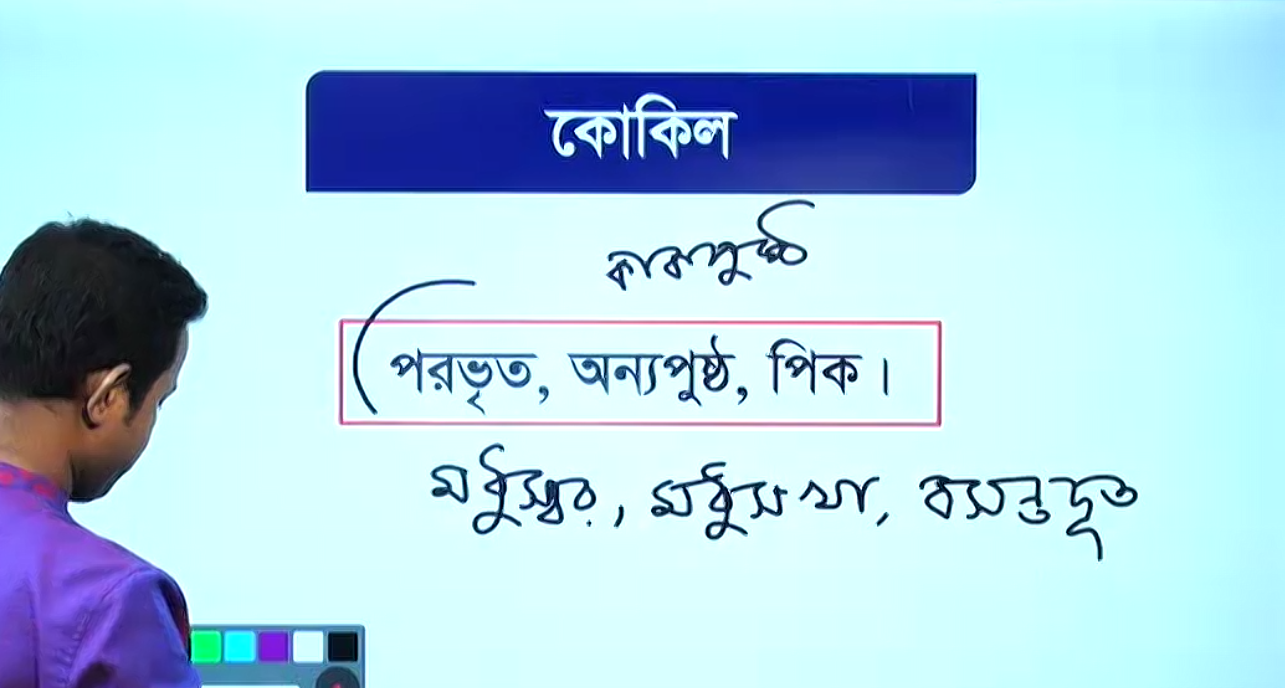 কোকিল
কাকপুষ্ঠ
পরভৃত, অন্যপুষ্ঠ, পিক।
মধুস্বর, মধুসখা, বসন্তদূত